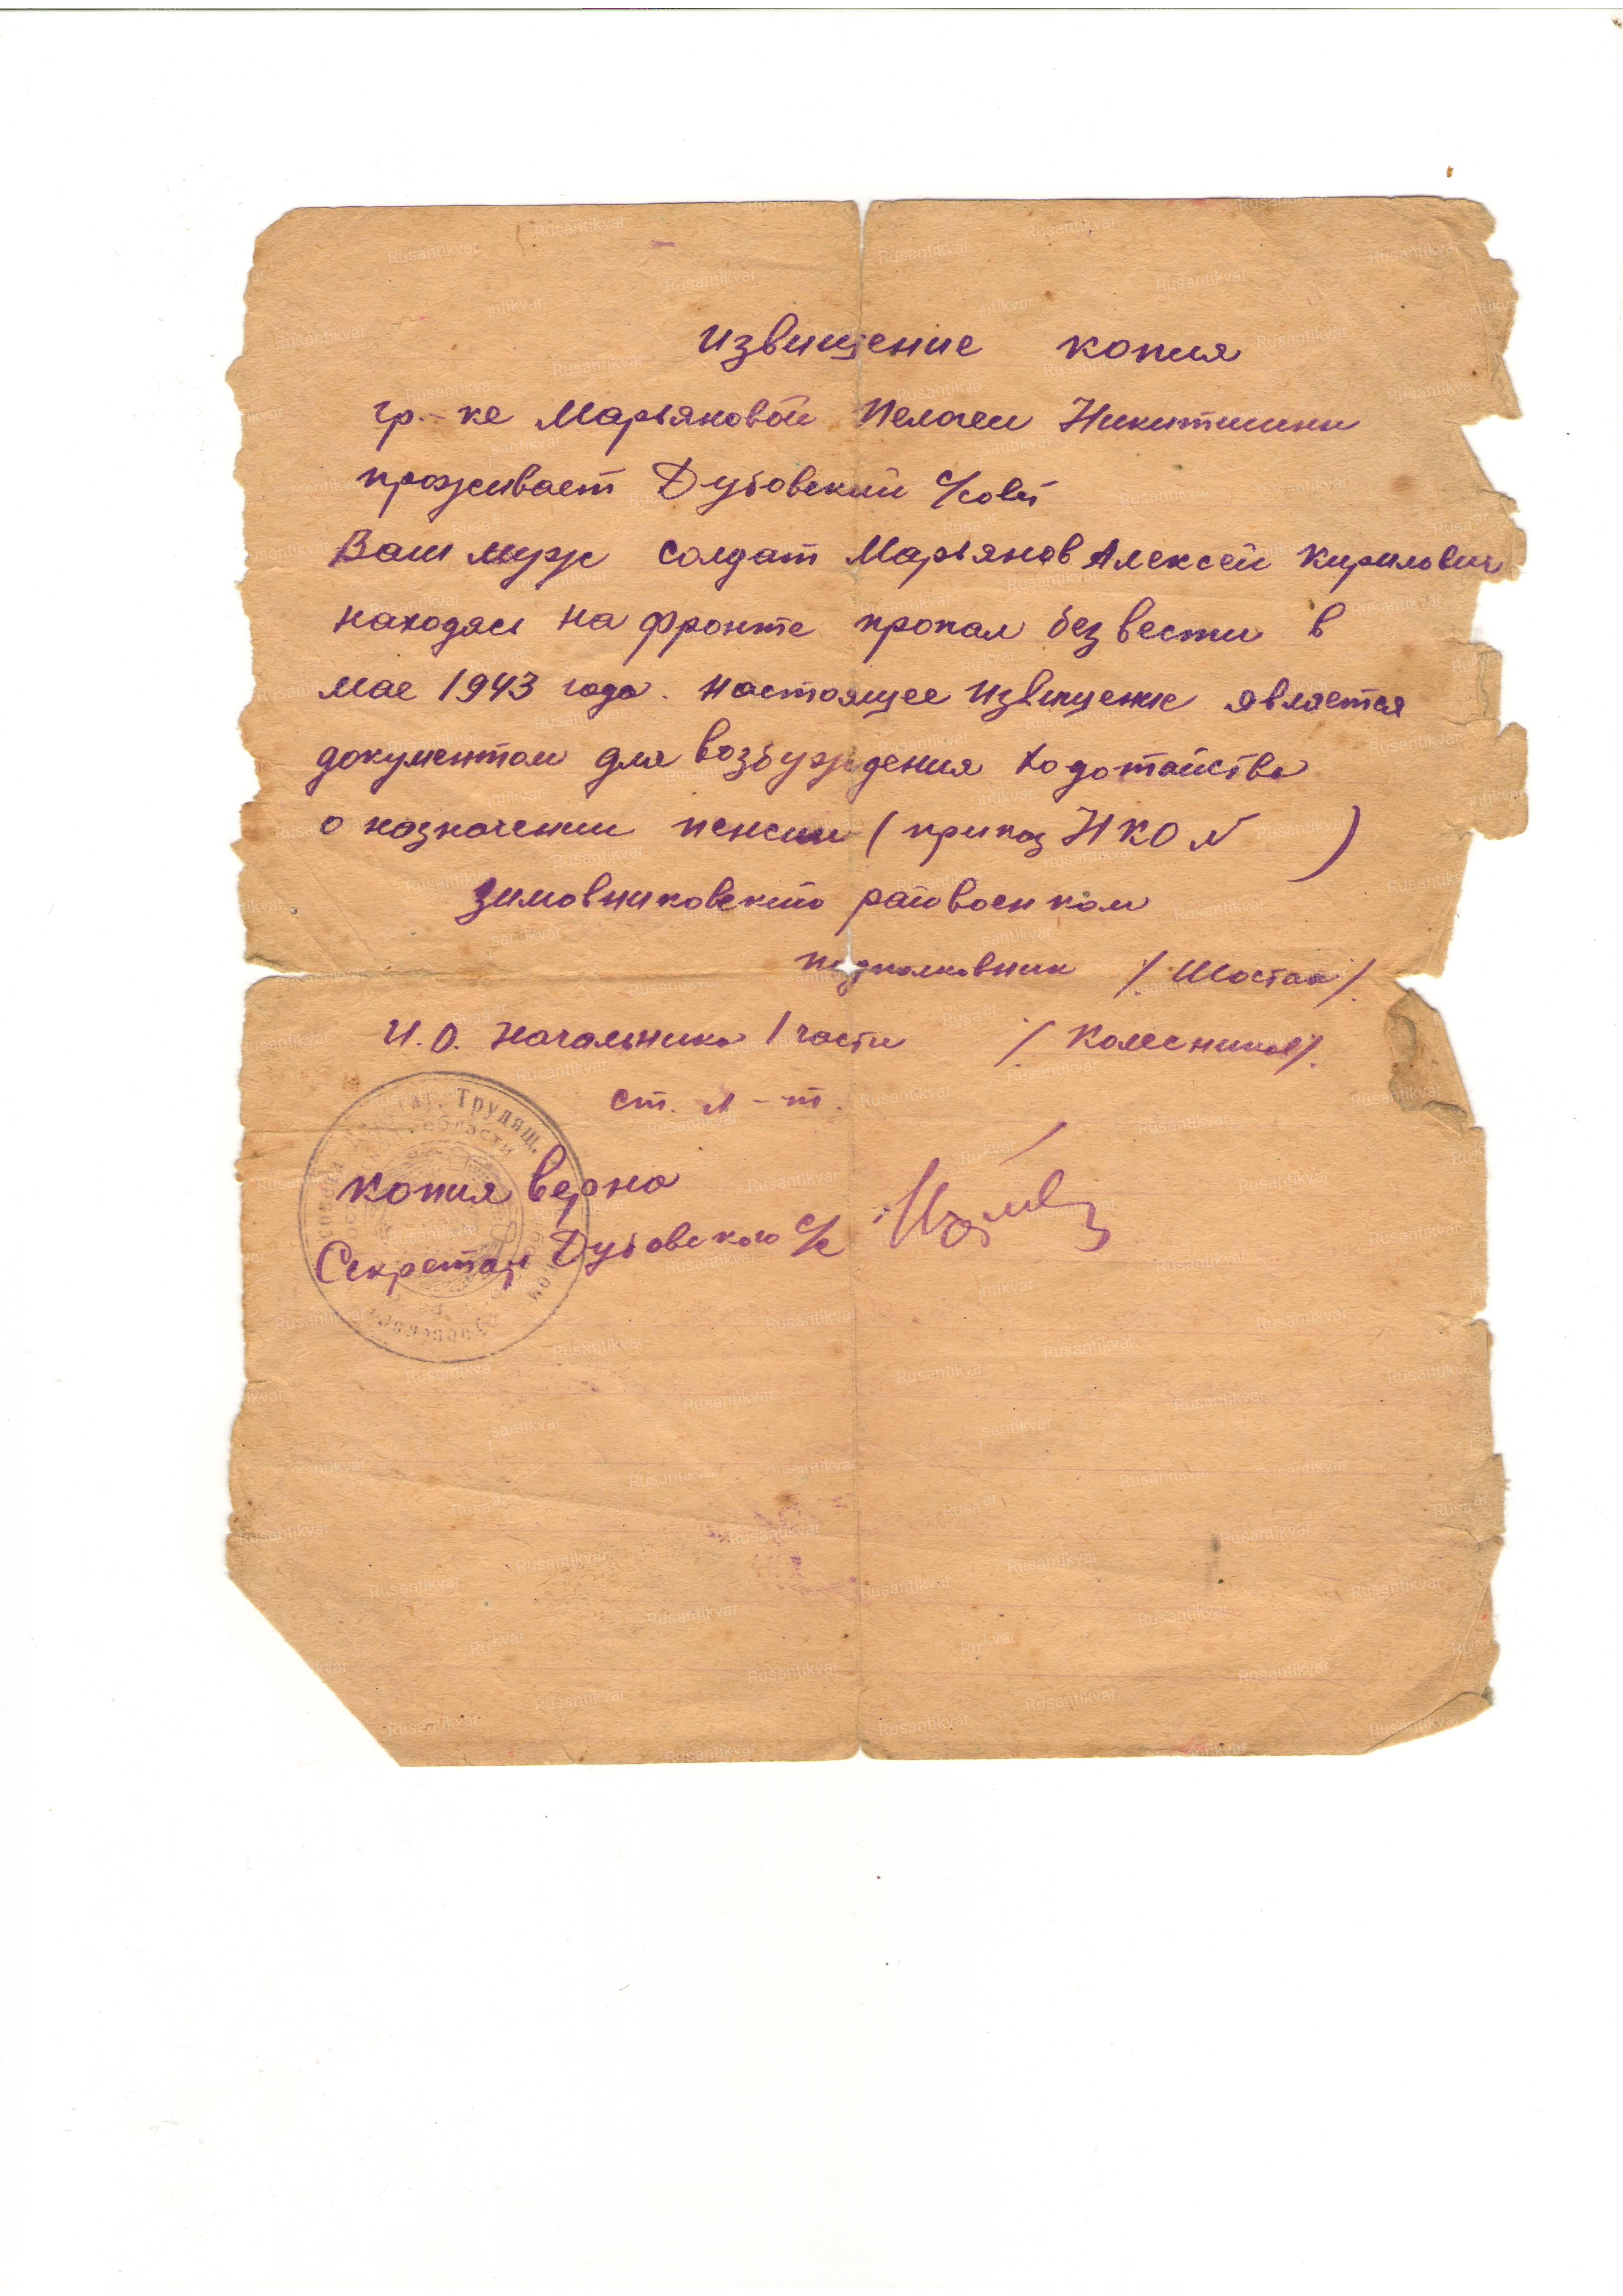 Извищение копия
гр.-ке Марьяновой Пелогеи Никитишни
проживает Дубовский с/совет
Ваш муж солдат Марьянов Алексей Кирилович
находясь на фронте пропал без вести в
мае 1943 года. Настоящее Извищение является
документом для возбуждения ходотайства
о назначении пенсии (приказ НКО № )
Зимовниковский райвоенком
подполковник /Шостак/.
И.О. Начальника 1 части /Колесников/.
ст. л-т.
Трудящ.
области
копия верна
Секретарь Дубовского с/с